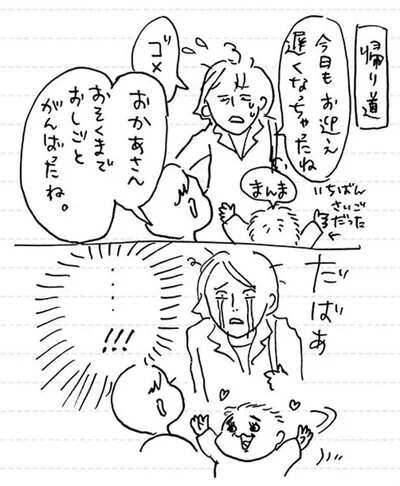 帰り道
今日もお迎え
遅くなっちゃったね
ゴメ
まんま
いちばん
さいご
だった
おかあさん
おそくまで
おしごと
がんばったね。
だばぁ
…
!!!